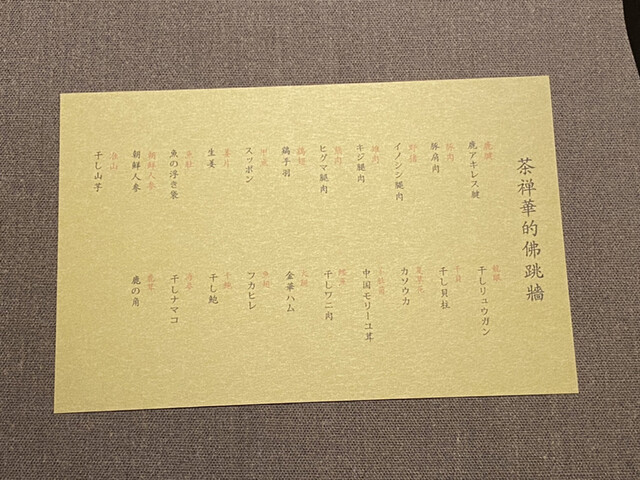 茶禅華的佛跳牆
鹿腱
鹿アキレス腱
豚肉
豚肩肉
野猪
イノシシ腿肉
雉肉
キジ腿肉
熊肉
ヒグマ腿肉
鶏翅
鶏手羽
甲魚
スッポン
姜片
生姜
魚肚
魚の浮き袋
朝鮮人参
朝鮮人参
淮山
干し山芋
龍眼
干しリュウガン
干貝
干し貝柱
夏草花
カソウカ
羊肚菌
中国モリーユ茸
干しワニ肉
火腿
金華ハム
魚翅
フカヒレ
干鮑
干し鮑
海参
干しナマコ
鹿茸
鹿の角